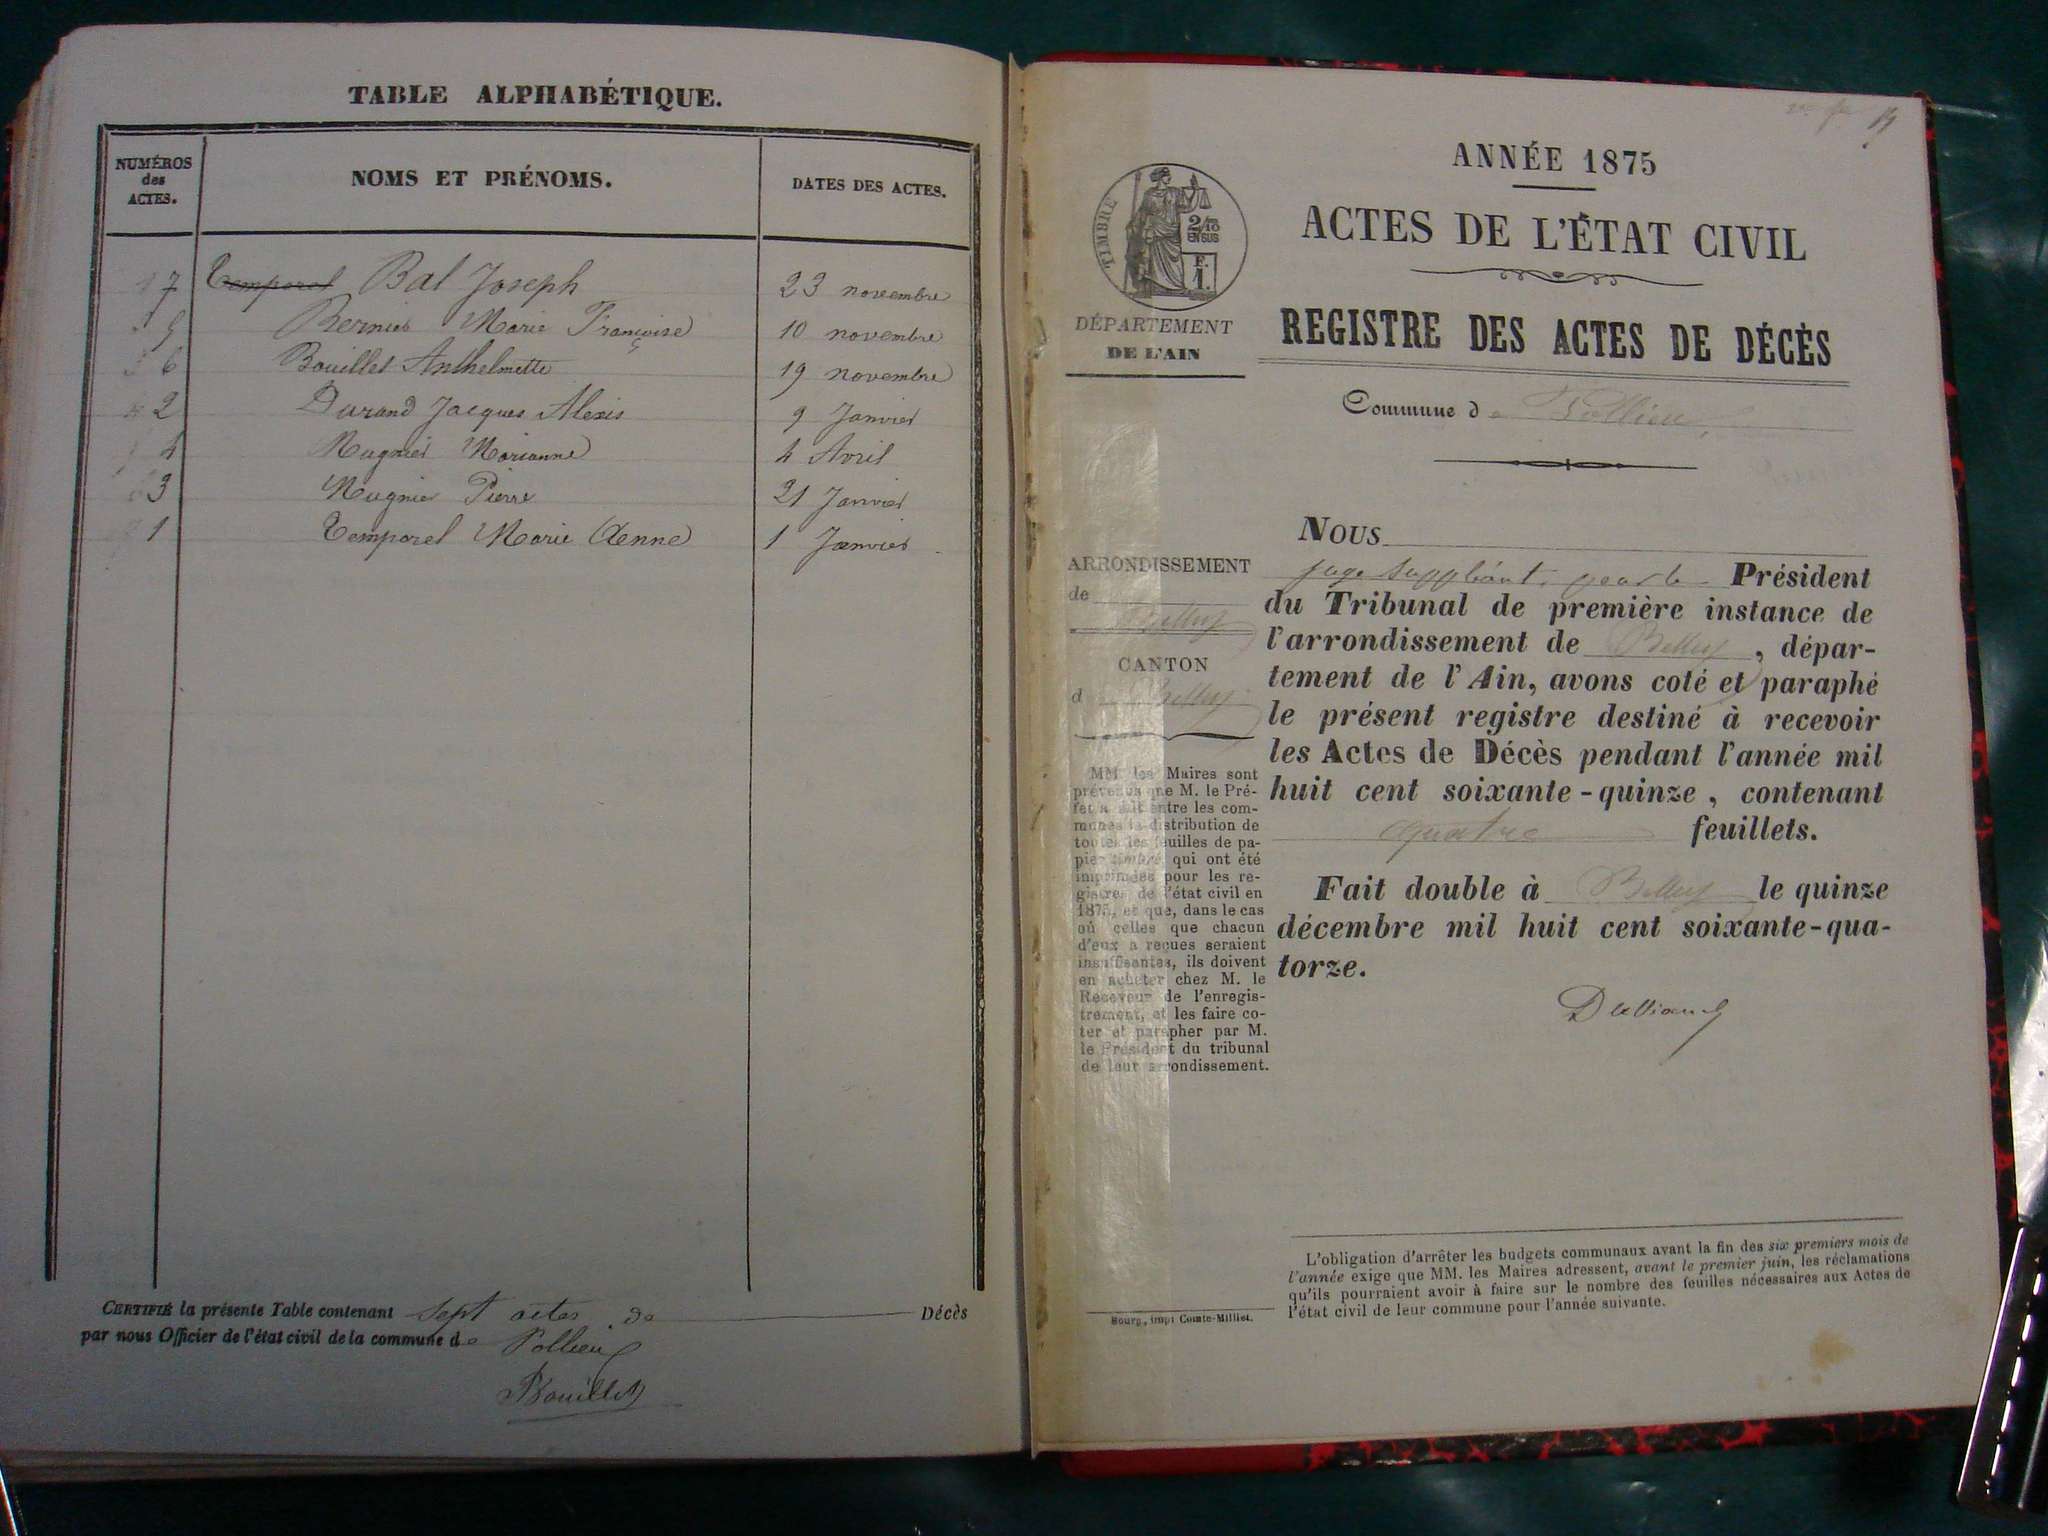 TABLE ALPHABÉTIQUE.
NUMÉROS des ACTES. NOMS ET PRÉNOMS. DATES DES ACTES.
7 Temporel Bal Joseph 23 novembre
5 Bernier Marie Françoise 10 novembre
6 Bouillet Anthelmette 19 novembre
2 Durand Jacques Alexis 9 Janvier
4 Mugnier Marianne 4 Avril
3 Mugnier Pierre 21 Janvier
1 Temporel Marie Aenne 1 Janvier
CERTIFIÉ la présente Table contenant sept actes de Décès
par nous Officier de l'état civil de la commune de Pollieu
Bouillet
ANNÉE 1875
ACTES DE L'ÉTAT CIVIL
REGISTRE DES ACTES DE DÉCÈS
Commune de Pollieu
TIMBRE
2/10
EN SUS
F.
1.
DÉPARTEMENT
DE L'AIN
ARRONDISSEMENT
de
Belley
CANTON
de Belley
MM. les Maires sont
prévenus que M. le Pré-
fet a fait entre les com-
munes la distribution de
toutes les feuilles de pa-
pier timbré qui ont été
imprimées pour les re-
gistres de l'état civil en
1875, et que, dans le cas
où celles que chacun
d'eux a reçues seraient
insuffisantes, ils doivent
en acheter chez M. le
Receveur de l'enregis-
trement, et les faire co-
ter et parapher par M.
le Président du tribunal
de leur arrondissement.
Bourg, impr Comte-Milliet.
NOUS
juge suppléant, pour le Président
du Tribunal de première instance de
l'arrondissement de Belley, dépar-
tement de l'Ain, avons coté et paraphé
le présent registre destiné à recevoir
les Actes de Décès pendant l'année mil
huit cent soixante-quinze, contenant
quatre feuillets.
Fait double à Belley le quinze
décembre mil huit cent soixante-qua-
torze.
L'obligation d'arrêter les budgets communaux avant la fin des six premiers mois de
l'année exige que MM. les Maires adressent, avant le premier juin, les réclamations
qu'ils pourraient avoir à faire sur le nombre des feuilles nécessaires aux Actes de
l'état civil de leur commune pour l'année suivante.